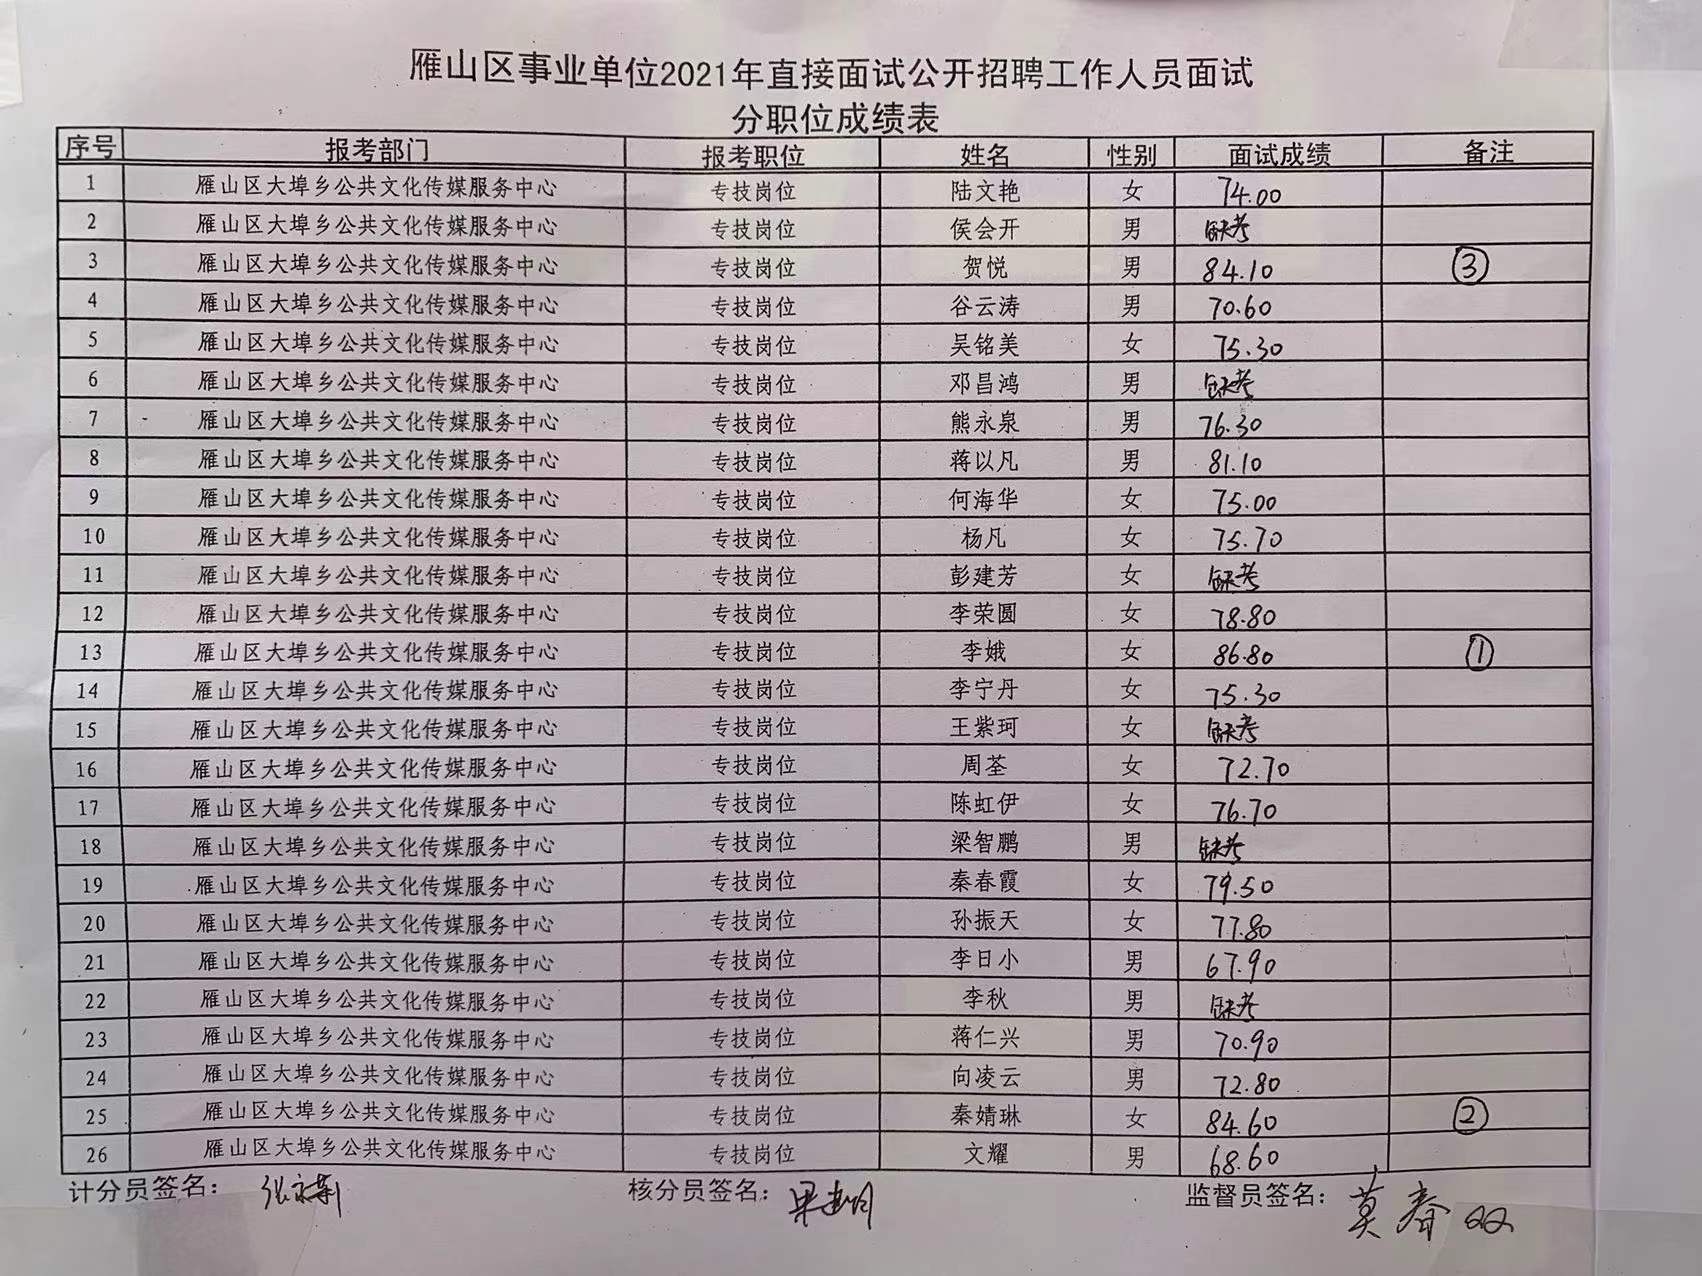 雁山区事业单位2021年直接面试公开招聘工作人员面试
分职位成绩表
序号 报考部门 报考职位 姓名 性别 面试成绩 备注
1 雁山区大埠乡公共文化传媒服务中心 专技岗位 陆文艳 女 74.00
2 雁山区大埠乡公共文化传媒服务中心 专技岗位 侯会开 男 缺考
3 雁山区大埠乡公共文化传媒服务中心 专技岗位 贺悦 男 84.10 ③
4 雁山区大埠乡公共文化传媒服务中心 专技岗位 谷云涛 男 70.60
5 雁山区大埠乡公共文化传媒服务中心 专技岗位 吴铭美 女 75.30
6 雁山区大埠乡公共文化传媒服务中心 专技岗位 邓昌鸿 男 缺考
7 雁山区大埠乡公共文化传媒服务中心 专技岗位 熊永泉 男 76.30
8 雁山区大埠乡公共文化传媒服务中心 专技岗位 蒋以凡 男 81.10
9 雁山区大埠乡公共文化传媒服务中心 专技岗位 何海华 女 75.00
10 雁山区大埠乡公共文化传媒服务中心 专技岗位 杨凡 女 75.70
11 雁山区大埠乡公共文化传媒服务中心 专技岗位 彭建芳 女 缺考
12 雁山区大埠乡公共文化传媒服务中心 专技岗位 李荣圆 女 78.80
13 雁山区大埠乡公共文化传媒服务中心 专技岗位 李娥 女 86.80 ①
14 雁山区大埠乡公共文化传媒服务中心 专技岗位 李宁丹 女 75.30
15 雁山区大埠乡公共文化传媒服务中心 专技岗位 王紫珂 女 缺考
16 雁山区大埠乡公共文化传媒服务中心 专技岗位 周荃 女 72.70
17 雁山区大埠乡公共文化传媒服务中心 专技岗位 陈虹伊 女 76.70
18 雁山区大埠乡公共文化传媒服务中心 专技岗位 梁智鹏 男 缺考
19 雁山区大埠乡公共文化传媒服务中心 专技岗位 秦春霞 女 79.50
20 雁山区大埠乡公共文化传媒服务中心 专技岗位 孙振天 女 77.80
21 雁山区大埠乡公共文化传媒服务中心 专技岗位 李日小 男 67.90
22 雁山区大埠乡公共文化传媒服务中心 专技岗位 李秋 男 缺考
23 雁山区大埠乡公共文化传媒服务中心 专技岗位 蒋仁兴 男 70.90
24 雁山区大埠乡公共文化传媒服务中心 专技岗位 向凌云 男 72.80
25 雁山区大埠乡公共文化传媒服务中心 专技岗位 秦婧琳 女 84.60 ②
26 雁山区大埠乡公共文化传媒服务中心 专技岗位 文耀 男 68.60
计分员签名： 核分员签名： 监督员签名：莫春双